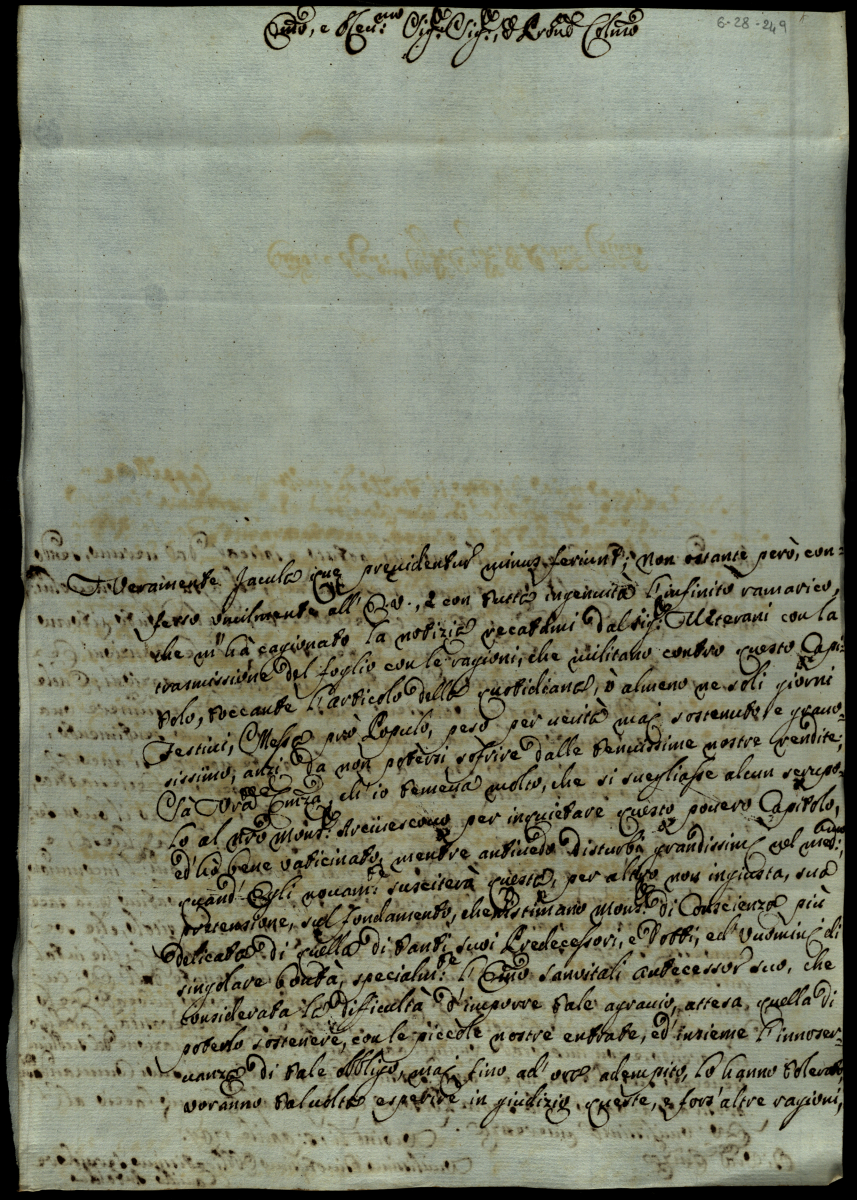 6-28-249
Emo, e Reu:mo Sigr: Sigr:, & Prōn Colmo
Veramente Jacula que preuidentur minus feriunt; non ostante però, con-
fesso vmilmente all' E.v., e con tutta ingenuità l'infinito ramarico,
che m'hà cagionato la notizia recatami dal Sigr: Ulterani con la
trasmissione del foglio con le ragioni, che militano contro questo Capi-
tolo, toccante l'articolo della quotidiana, ò almeno ne soli giorni
Festiui, Messa prò Populo, peso per uerità mai sostenuto e grauo-
sissimo, anzi da non potersi sofrire dalle tenuissime nostre rendite;
Sà Vra Emza, ch'io temeua molto, che si suegliasse alcun scrupo-
lo al nro Monsr: Arciuescouo per inquietare questo pouero Capitolo,
ed' hò bene vaticinato, mentre antiuedo disturbi grandissimi nel med:mo,
quand' Egli nouam:te susciterà questa, per altro non ingiusta, sua
pretensione, sul fondamento, che stimano Monsr: di Conscienza più
delicata di quella di tanti suoi Predecessori, e Dotti, ed' vuomini di
singolare bontà, specialm:te l'Emo Sanuitali Antecessor suo, che
considerata la dificultà d'imporre tale agrauio, attesa quella di
poterlo sostenere, con le piccole nostre entrate, ed' insieme l'innoser-
uanza di tale obbligo, mai fino ad' ora adempito, lo hanno tolerato,
voranno taluolta espedire in giudizio queste, e fors' altre ragioni,